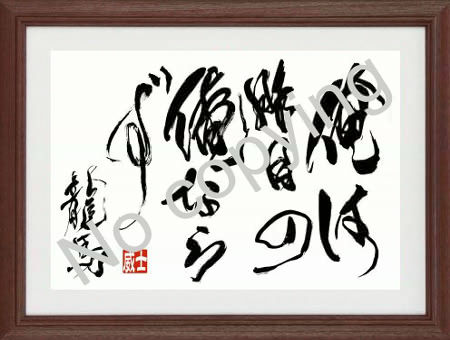 俺は
昨日の
俺なら
ず
龍馬
士威
No copying